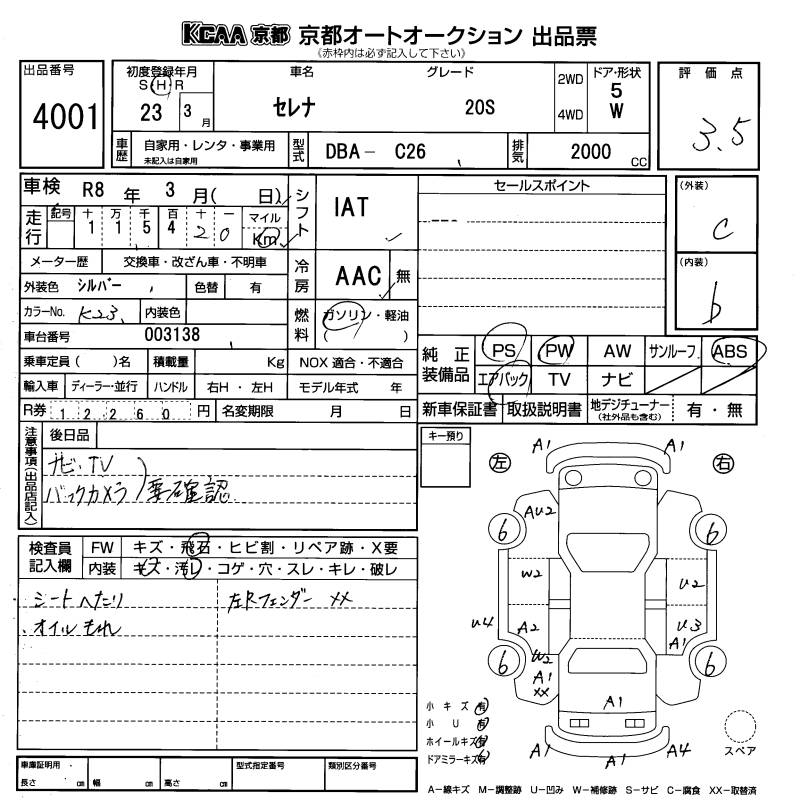 KCAA 京都 京都オートオークション 出品票
(赤枠内は必ず記入して下さい)
出品番号
4001
初度登録年月
S H R
23 3 月
車名
セレナ
グレード
20S
2WD
4WD
ドア・形状
5
W
評価点
3.5
車歴 自家用・レンタ・事業用
未記入は自家用
型式 DBA- C26
排気 2000 CC
車検 R8 年 3 月( 日)
シフト IAT
セールスポイント
(外装)
C
走行 記号 十 万 千 百 十 一 マイル
1 1 5 4 2 0 Km
メーター歴 交換車・改ざん車・不明車
冷房 AAC 無
(内装)
b
外装色 シルバー 色替 有
カラーNo. K23 内装色
燃料 ガソリン・軽油
( )
車台番号 003138
純正装備品 PS PW AW サンルーフ ABS
エアバック TV ナビ
乗車定員( )名 積載量 Kg NOX 適合・不適合
輸入車 ディーラー・並行 ハンドル 右H・左H モデル年式 年
新車保証書 取扱説明書 地デジチューナー 有・無
(社外品も含む)
R券 12260 円 名変期限 月 日
注意事項(出品店記入)
後日品
ナビ・TV
バックカメラ 要確認
キー預り
左
右
A1 A1
AU2
6 6
W2 U2
U4 A2 U3
A1
W2
6 6
A1
XX
A1
A1 A1 A4
検査員記入欄 FW キズ・飛石・ヒビ割・リペア跡・X要
内装 キズ・汚レ・コゲ・穴・スレ・キレ・破レ
シートへたり
左Rフェンダー XX
オイルもれ
小キズ 有
小U 有
ホイールキズ 有
ドアミラーキズ 有
スペア
車庫証明用・
長さ cm 幅 cm 高さ cm
型式指定番号
類別区分番号
A-線キズ M-調整跡 U-凹み W-補修跡 S-サビ C-腐食 XX-取替済